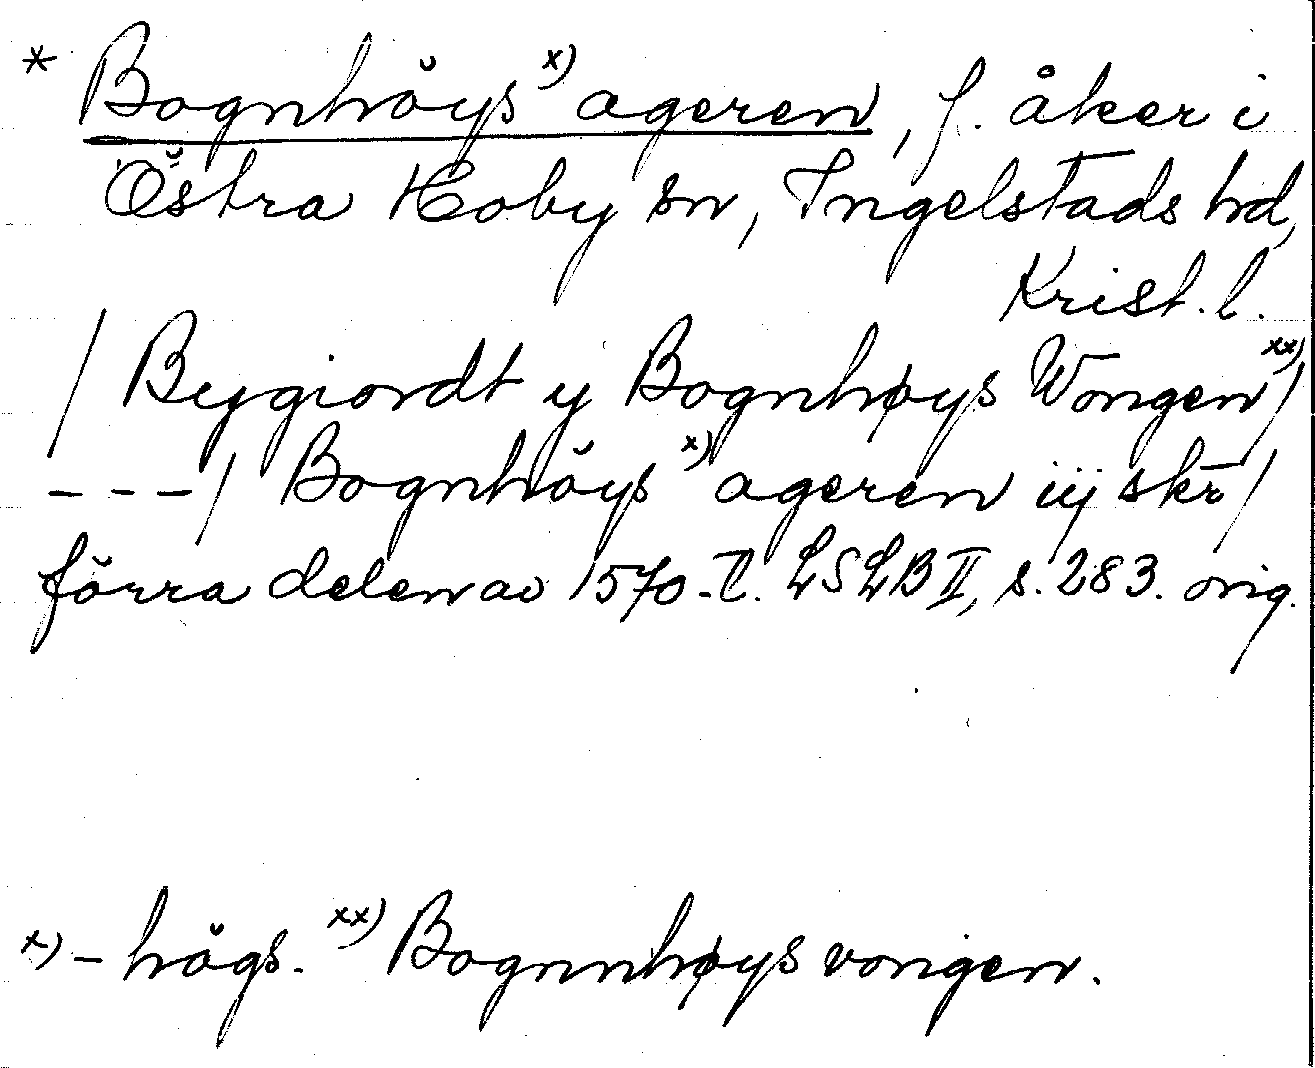 * Bognhöys x) ageren, f. åker i
Östra Hoby sn, Ingelstads hd,
Krist. l.
/ Bygiordt y Bognhøys Wongen xx) /
- - - / Bognhöys x) ageren iij skr̄ /
förra delen av 1570-t. LSLB II, s. 283. orig.
x) - högs. xx) Bognnhøys vongen.